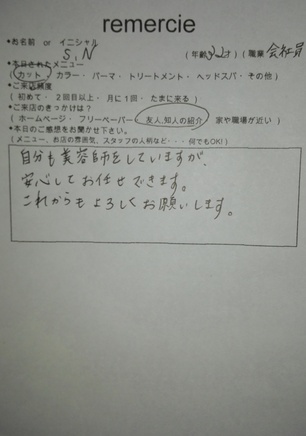 remercie
*お名前 or イニシャル
S,N (年齢32才) (職業 会社員
*本日されたメニュー
(カット・カラー・パーマ・トリートメント・ヘッドスパ・その他)
*ご来店頻度
(初めて・2回目以上・月に1回・たまに来る)
*ご来店のきっかけは?
(ホームページ・フリーペーパー・友人,知人の紹介 家や職場が近い)
*本日のご感想をお聞かせ下さい。
(メニュー、お店の雰囲気、スタッフの人柄など・・何でもOK!)
自分も美容師をしていますが、
安心してお任せできます。
これからもよろしくお願いします。